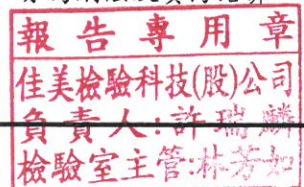 報告專用章
佳美檢驗科技(股)公司
負責人:許瑞麟
檢驗室主管:林芳如